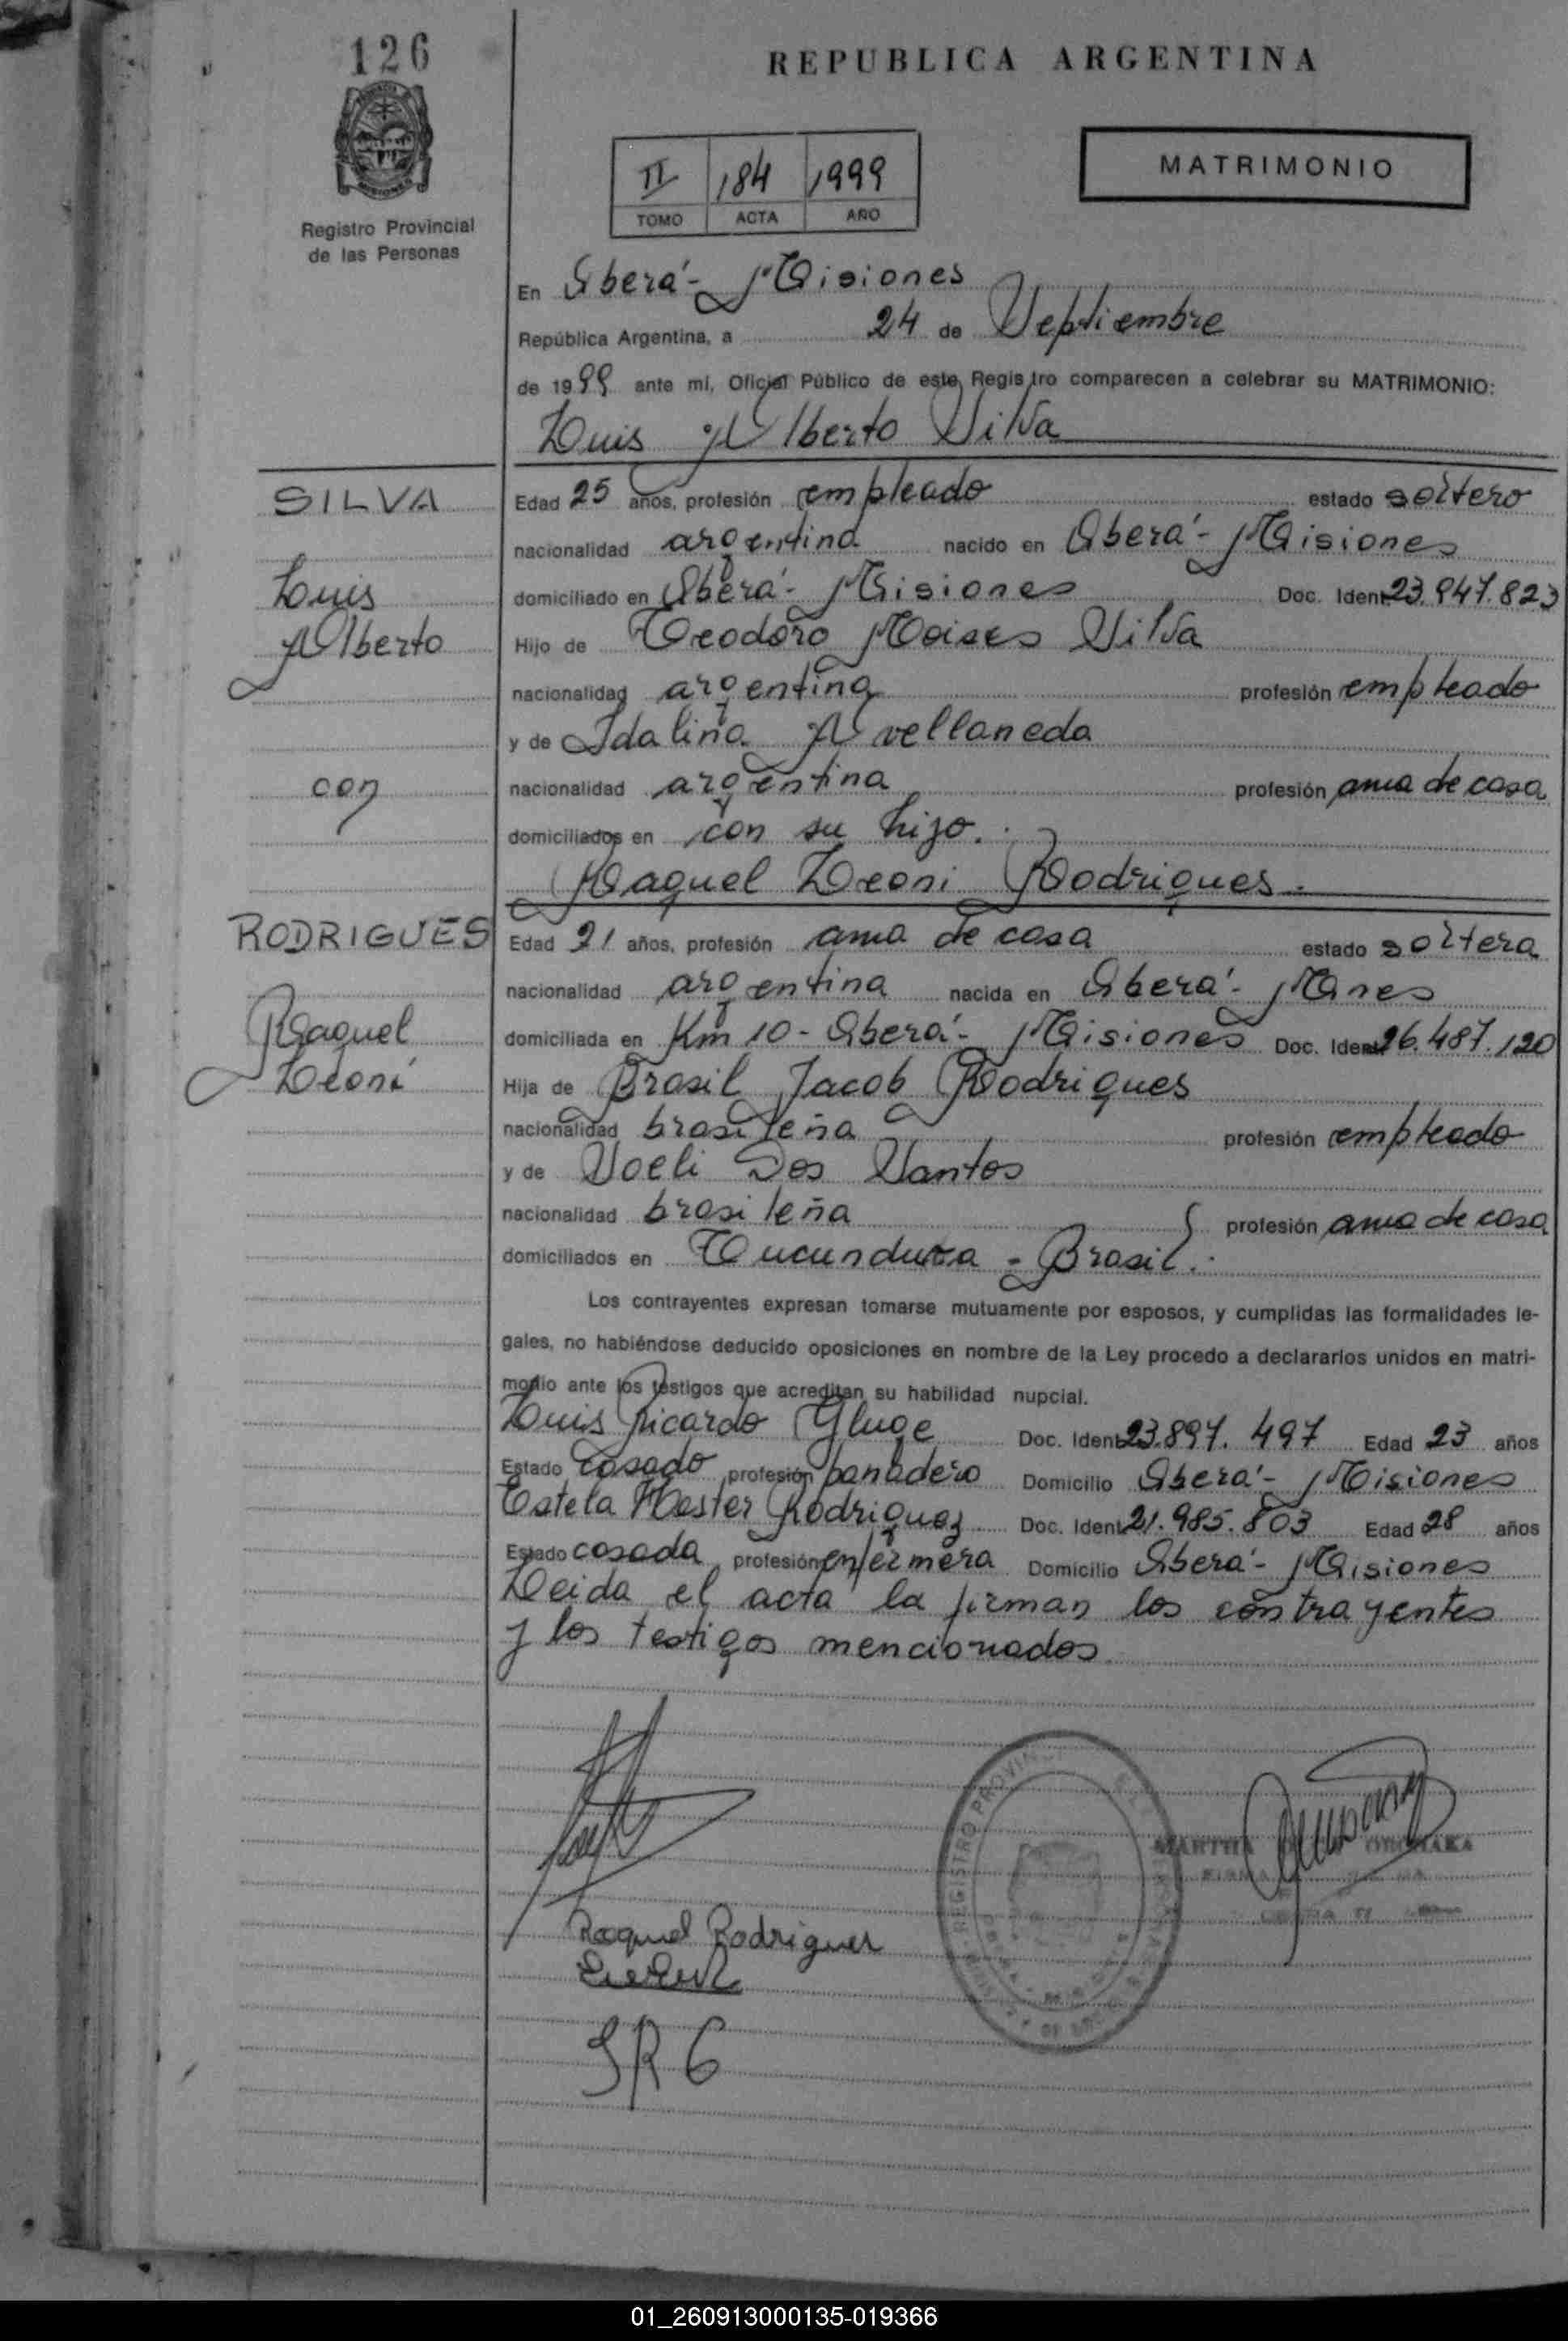 126
REPUBLICA ARGENTINA
Registro Provincial
de las Personas
II 184 1999
TOMO ACTA AÑO
MATRIMONIO
En Oberá - Misiones
República Argentina, a 24 de Septiembre
de 1999 ante mi, Oficial Público de este Registro comparecen a celebrar su MATRIMONIO:
Luis Alberto Silva
SILVA
Luis
Alberto
con
Edad 25 años, profesión empleado estado soltero
nacionalidad argentina nacido en Oberá - Misiones
domiciliado en Oberá - Misiones Doc. Ident. 23.947.823
Hijo de Teodoro Moises Silva
nacionalidad argentina profesión empleado
y de Idalina Avellaneda
nacionalidad argentina profesión ama de casa
domiciliados en con su hijo.
Raquel Leoni Rodrigues.
RODRIGUES
Raquel
Leoni
Edad 21 años, profesión ama de casa estado soltera
nacionalidad argentina nacida en Oberá - Mnes
domiciliada en Km 10 - Oberá - Misiones Doc. Ident. 26.487.120
Hija de Brasil Jacob Rodrigues
nacionalidad brasileña profesión empleado
y de Soeli Dos Santos
nacionalidad brasileña profesión ama de casa
domiciliados en Tucunduva - Brasil.
Los contrayentes expresan tomarse mutuamente por esposos, y cumplidas las formalidades le-
gales, no habiéndose deducido oposiciones en nombre de la Ley procedo a declararlos unidos en matri-
monio ante los testigos que acreditan su habilidad nupcial.
Luis Ricardo Gluge Doc. Ident. 23.897.497 Edad 23 años
Estado casado profesión panadero Domicilio Oberá - Misiones
Estela Hester Rodriguez Doc. Ident. 21.985.803 Edad 28 años
Estado casada profesión enfermera Domicilio Oberá - Misiones
Leida el acta la firman los contrayentes
y los testigos mencionados
REGISTRO PROVIN
MARTHA
Raquel Rodrigues
01_260913000135-019366